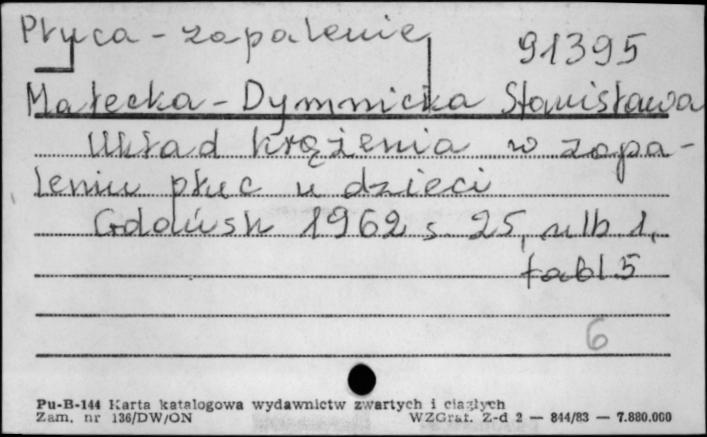 Płuca - zapalenie
91395
Małecka - Dymnicka Stanisława
Układ krążenia w zapa-
leniu płuc u dzieci
Gdańsk 1962 s. 25, nlb 1,
tabl 5
6
Pu-B-144 Karta katalogowa wydawnictw zwartych i ciągłych
Zam. nr 136/DW/ON WZGraf. Z-d 2 — 844/83 — 7.880.000